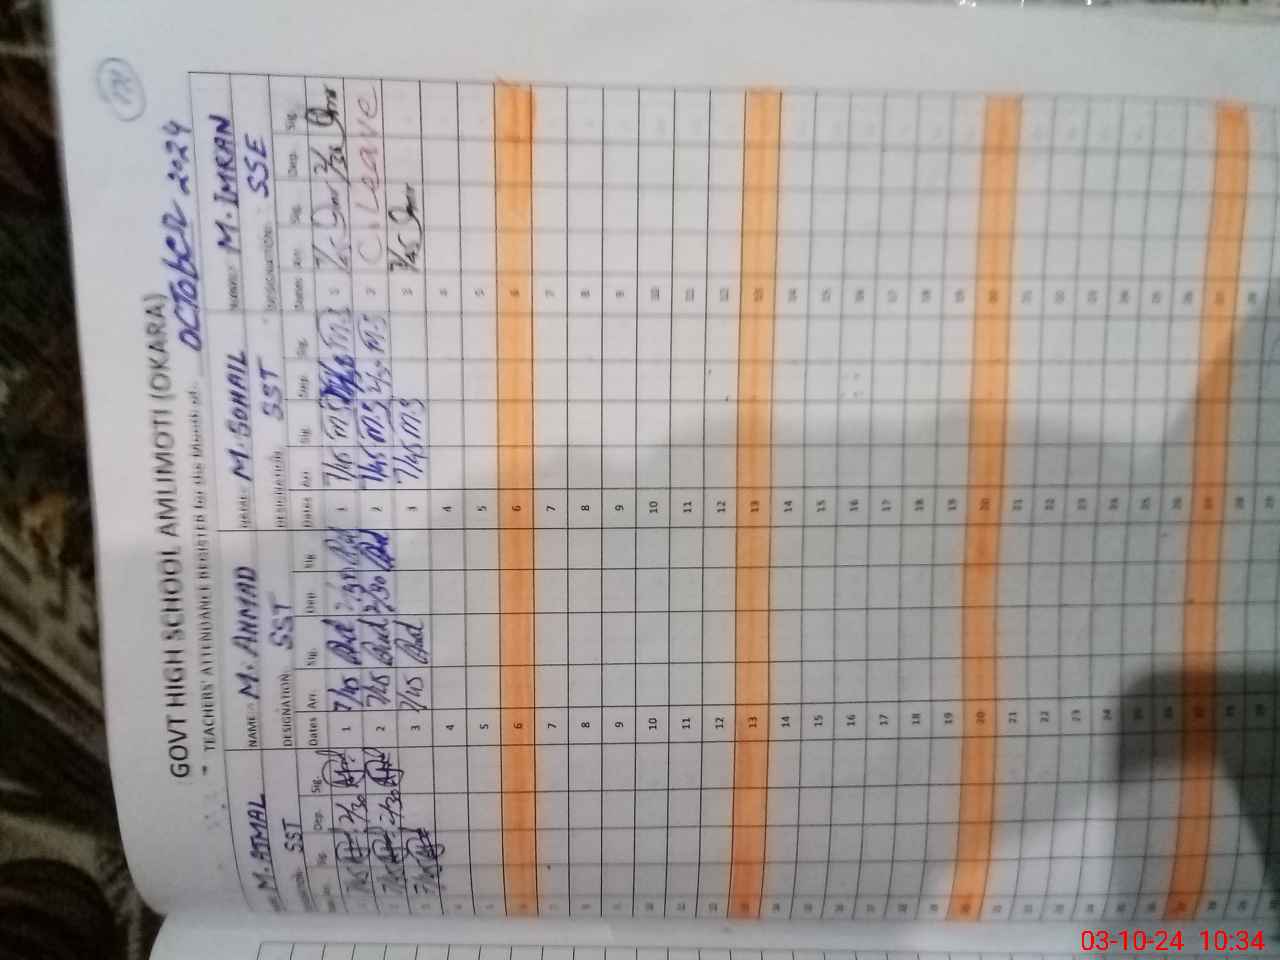 GOVT HIGH SCHOOL AMLIMOTI (OKARA)
TEACHERS' ATTENDANCE REGISTER for the Month of: OCTOBER 2024
M. AJMAL NAME: M. AHMAD NAME: M. SOHAIL NAME: M. IMRAN
SST DESIGNATION: SST DESIGNATION: SST DESIGNATION: SSE
Sig. Dep. Sig. Dates Arr. Sig. Dep. Sig. Dates Arr. Sig. Dep. Sig. Dates Arr. Sig. Dep. Sig.
1 7/45 2/30 1 7/45 2/30 1 7/45 M.S M.S 1 7/45 2/30
2 7/45 2/30 2 7/45 2/30 2 7/45 M.S 2/30 M.S 2 C. Leave
3 7/45 3 7/45 3 7/45 M.S 3 7/45
4 4 4 4
5 5 5 5
6 6 6 6
7 7 7 7
8 8 8 8
9 9 9 9
10 10 10 10
11 11 11 11
12 12 12 12
13 13 13 13
14 14 14 14
15 15 15 15
16 16 16 16
17 17 17 17
18 18 18 18
19 19 19 19
20 20 20 20
21 21 21 21
22 22 22 22
23 23 23 23
24 24 24 24
25 25 25 25
26 26 26 26
27 27 27 27
28 28 28 28
03-10-24 10:34